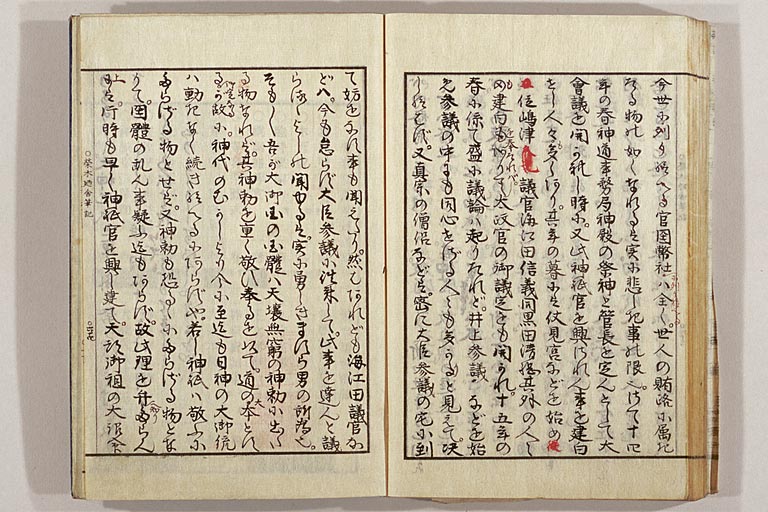 今世に列り給へる官国幣社は全く世人の賄賂に属た
る物の如くなれるは実に悲しき事の限也けて十四
年の春神道事務局神殿の祭神と管長を定んとして大
会議を開かれし時に又此神祇官を興されん事を建白
をし人々多くありき其年の暮には伏見宮などを始め
位嶋津 議官海江田信義同黒田清綱其外の人々
の建白もありて太政官の御議定とも聞られ十五年の
春に係て盛に議論の起りたれど井上参議などを始
め参議の中にも同心せざる人々も多かると見えて
り給はず又真宗の僧侶などは密に大臣参議の宅に到
て妨をなす事も聞えたり然しあれども海江田議官な
どは今も怠らず大臣参議に談来して此事を達んと議
らるゝ聞ゆるは実に勇しきますら男の所為也
そも〱吾が大御国の国体は天壌無窮の神勅に出た
る物なれば其神勅を重く敬ひ奉るを以て道の本とす
るが故に神代のむかしより今に至迄も日神の大御統
は動きなく続き給へるにあらずや若し神祇は敬ふに
たらざる物とせば又神勅も恐るゝにたらざる物とな
りて国体の乱ん事疑ふ迄もあらず故此理を弁へたらん
上は片時も早く神祇官を興し建て天神御祖の大詔命